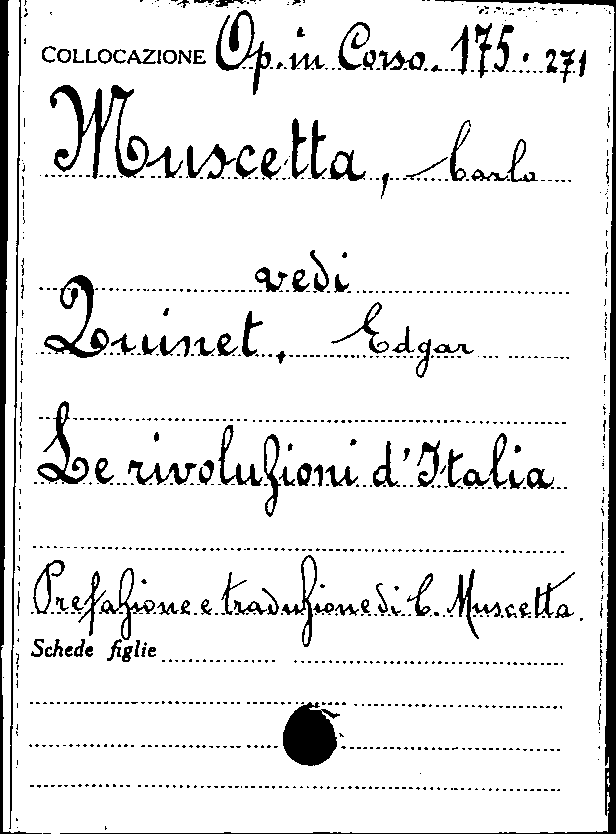 COLLOCAZIONE Op. in Corso. 175. 271
Muscetta, Carlo
vedi
Quinet, Edgar
Le rivoluzioni d'Italia
Prefazione e traduzione di C. Muscetta.
Schede figlie